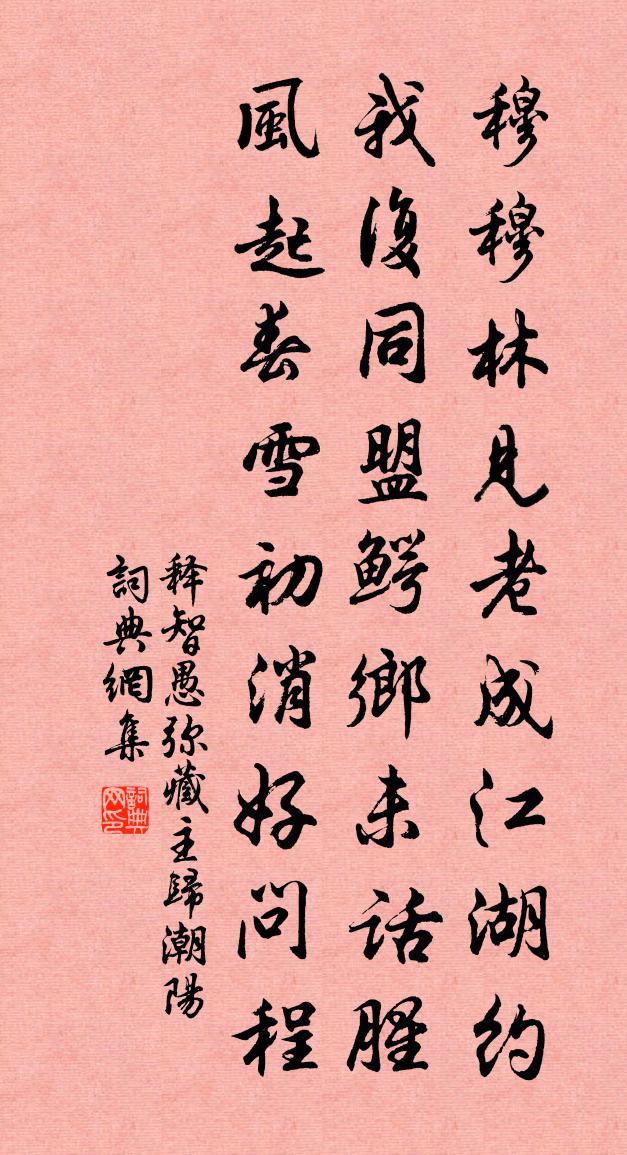 穆穆林見老成江湖約
我復同盟鰐鄉未話腥
風起春雪初消好問程
释智愚弥藏主歸潮陽
詞典網集
詞典
网印